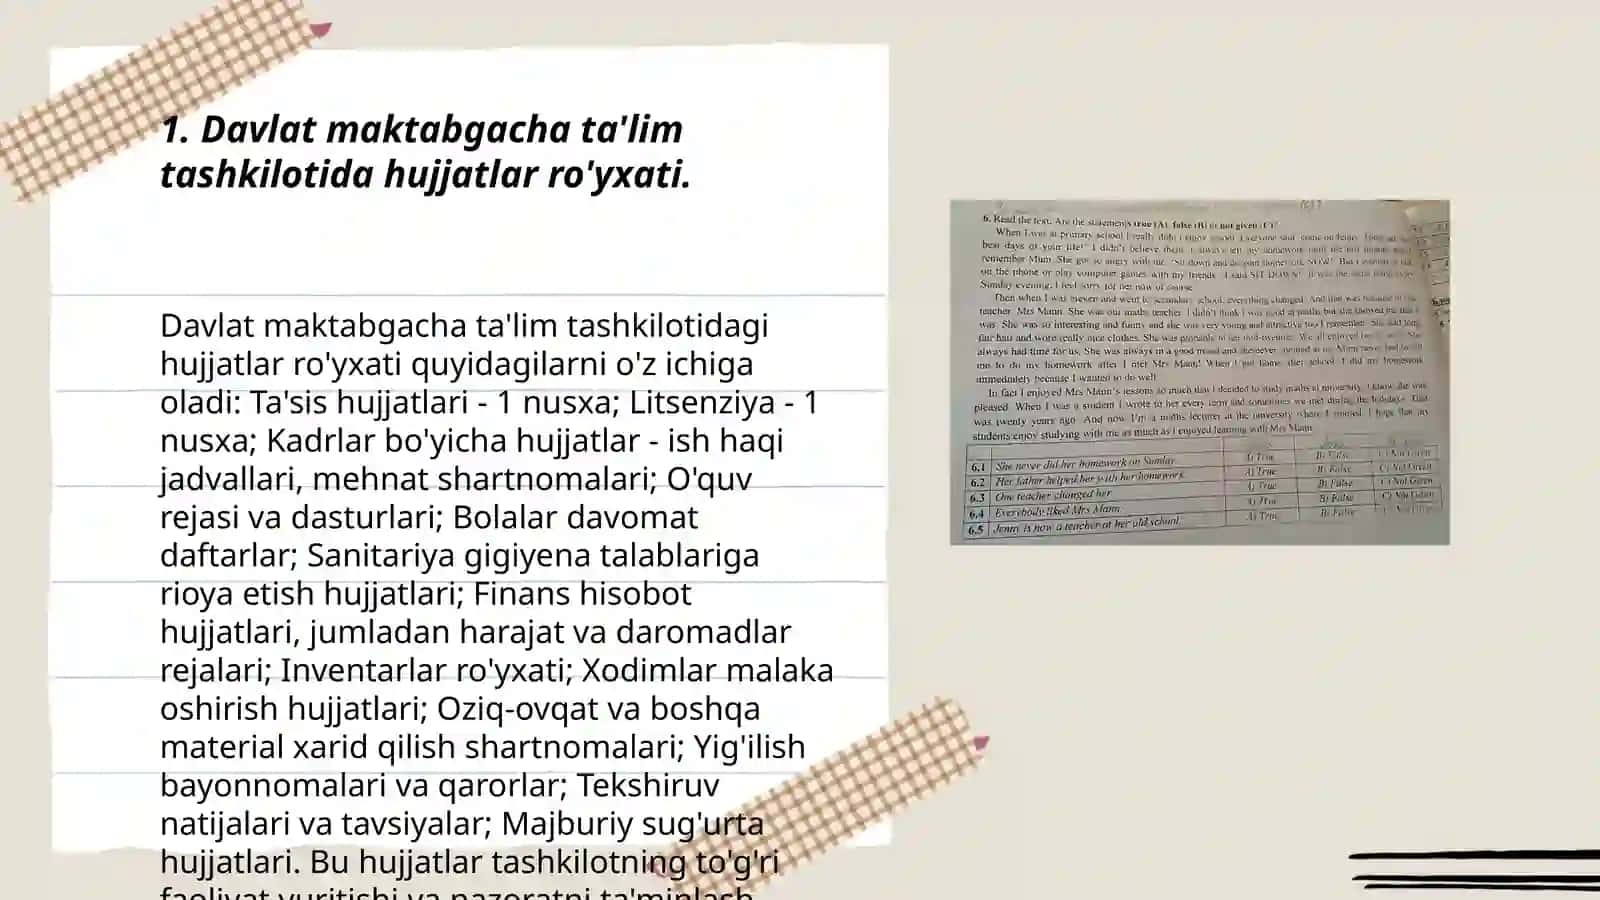 1. Davlat maktabgacha ta'lim
tashkilotida hujjatlar ro'yxati.
Davlat maktabgacha ta'lim tashkilotidagi
hujjatlar ro'yxati quyidagilarni o'z ichiga
oladi: Ta'sis hujjatlari - 1 nusxa; Litsenziya - 1
nusxa; Kadrlar bo'yicha hujjatlar - ish haqi
jadvallari, mehnat shartnomalari; O'quv
rejasi va dasturlari; Bolalar davomat
daftarlar; Sanitariya gigiyena talablariga
rioya etish hujjatlari; Finans hisobot
hujjatlari, jumladan harajat va daromadlar
rejalari; Inventarlar ro'yxati; Xodimlar malaka
oshirish hujjatlari; Oziq-ovqat va boshqa
material xarid qilish shartnomalari; Yig'ilish
bayonnomalari va qarorlar; Tekshiruv
natijalari va tavsiyalar; Majburiy sug'urta
hujjatlari. Bu hujjatlar tashkilotning to'g'ri
faoliyat yuritishi va nazoratni ta'minlash
6. Read the text. Are the statements true (A), false (B) or not given (C)?
When I was at primary school I really didn't enjoy school. Everyone said
best days of your life!" I didn't believe them. I always left my homework until the last
remember Mum. She got so angry with me. "Sit down and do your homework NOW!" But I
on the phone or play computer games with my friends. "I said SIT DOWN!" It was the same
Sunday evening. I feel sorry for her now of course.
Then when I was eleven and went to secondary school, everything changed. And that was because of
teacher, Mrs Mann. She was our maths teacher. I didn't think I was good at maths but she showed me that I
was. She was so interesting and funny and she was very young and attractive too I remember. She had long
fair hair and wore really nice clothes. She was probably in her mid-twenties. We all enjoyed
always had time for us. She was always in a good mood and
me to do my homework after I met Mrs Mann! When I got home after school I did my homework
immediately because I wanted to do well.
In fact I enjoyed Mrs Mann's lessons so much that I decided to study maths at university. I know she was
pleased. When I was a student I wrote to her every term and sometimes we met during the holidays. That
was twenty years ago. And now I'm a maths lecturer at the university where I studied. I hope that my
students enjoy studying with me as much as I enjoyed learning with Mrs Mann.
6.1 She never did her homework on Sunday. A) True B) False C) Not Given
6.2 Her father helped her with her homework. A) True B) False C) Not Given
6.3 One teacher changed her. A) True B) False C) Not Given
6.4 Everybody liked Mrs Mann. A) True B) False C) Not Given
6.5 Jenny is now a teacher at her old school. A) True B) False C) Not Given